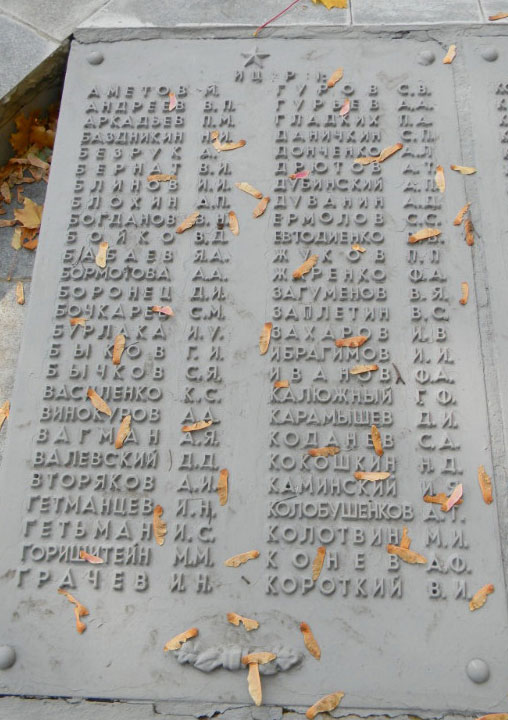 АМЕТОВ Я.
АНДРЕЕВ В.П.
АРКАДЬЕВ П.М.
БАЗДНИКИН
БЕЗРУК А.
БЕРНАД В.
БЛИНОВ И.И.
БЛОХИН А.П.
БОГДАНОВ В.Н.
БОЙКО В.Д.
БАБАЕВ Я.А.
БОРМОТОВА А.А.
БОРОНЕЦ Д.И.
БОЧКАРЕВ С.М.
БУРЛАКА И.У.
БЫКОВ Г.И.
БЫЧКОВ С.Я.
ВАСИЛЕНКО К.С.
ВИНОКУРОВ А.А.
ВАГМАН А.Я.
ВАЛЕВСКИЙ Д.Д.
ВТОРЯКОВ А.И.
ГЕТМАНЦЕВ И.Н.
ГЕТЬМАН И.С.
ГОРИШТЕЙН М.М.
ГРАЧЕВ И.Н.
ГУРОВ С.В.
ГУРЬЕВ А.А.
ГЛАДКИХ П.А.
ДАНИЧКИН С.П.
ДОНЧЕНКО А.П.
ДРЮТОВ А.
ДУБИНСКИЙ А.А.
ДУВАНИН А.Д.
ЕРМОЛОВ С.С.
ЕВТОДИЕНКО
ЖУКОВ П.П.
ЖУРЕНКО Ф.А.
ЗАГУМЕНОВ В.Я.
ЗАПЛЕТИН В.С.
ЗАХАРОВ И.В.
ИБРАГИМОВ И.И.
ИВАНОВ Ф.А.
КАЛЮЖНЫЙ Г.Ф.
КАРАМЫШЕВ Д.И.
КОДАНЕВ С.Д.
КОКОШКИН Н.Д.
КАМИНСКИЙ И.
КОЛОБУШЕНКОВ А.
КОЛОТВИН М.И.
КОНЕВ А.Ф.
КОРОТКИЙ В.И.